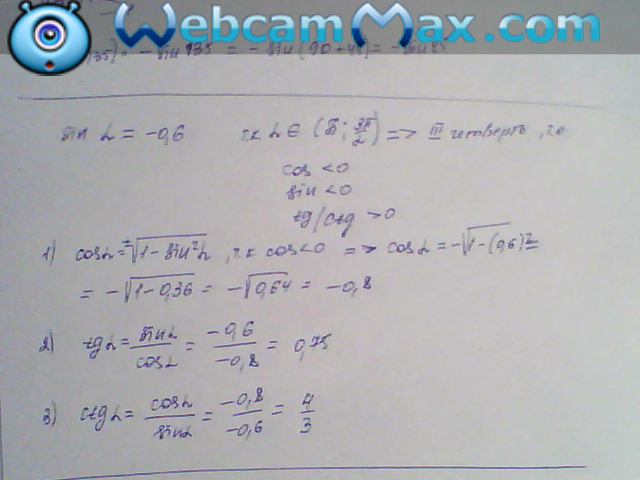 WebcamMax.com
= - sin 135 = - sin (90+45) = - sin 45
sin α = -0,6 т.к. α ∈ (π; 3π/2) => III четверть, т.е.
cos < 0
sin < 0
tg/ctg > 0
1) cos α = ±√(1 - sin²α), т.к. cos < 0 => cos α = -√(1-(0,6)²) =
= -√(1-0,36) = -√0,64 = -0,8
2) tg α = sin α / cos α = -0,6 / -0,8 = 0,75
3) ctg α = cos α / sin α = -0,8 / -0,6 = 4/3